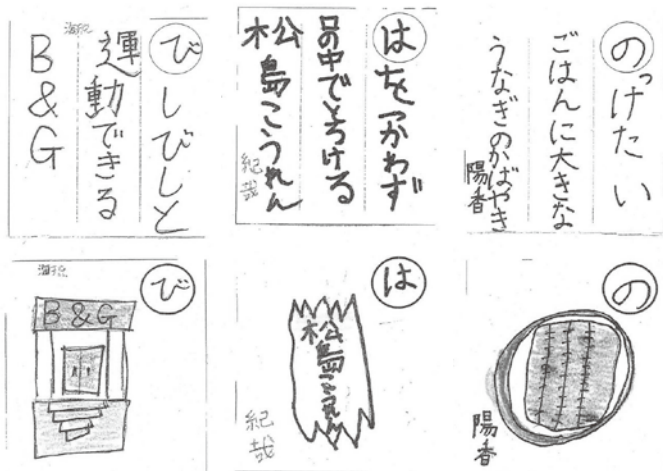 のったけい
ごはんに大きな
うなぎのかばやき
陽香
はをつかわず
口の中でとろける
松島こうれん
紀哉
びしびしと
運動できる
B&G
の
陽香
は
松島こうれん
紀哉
び
B&G